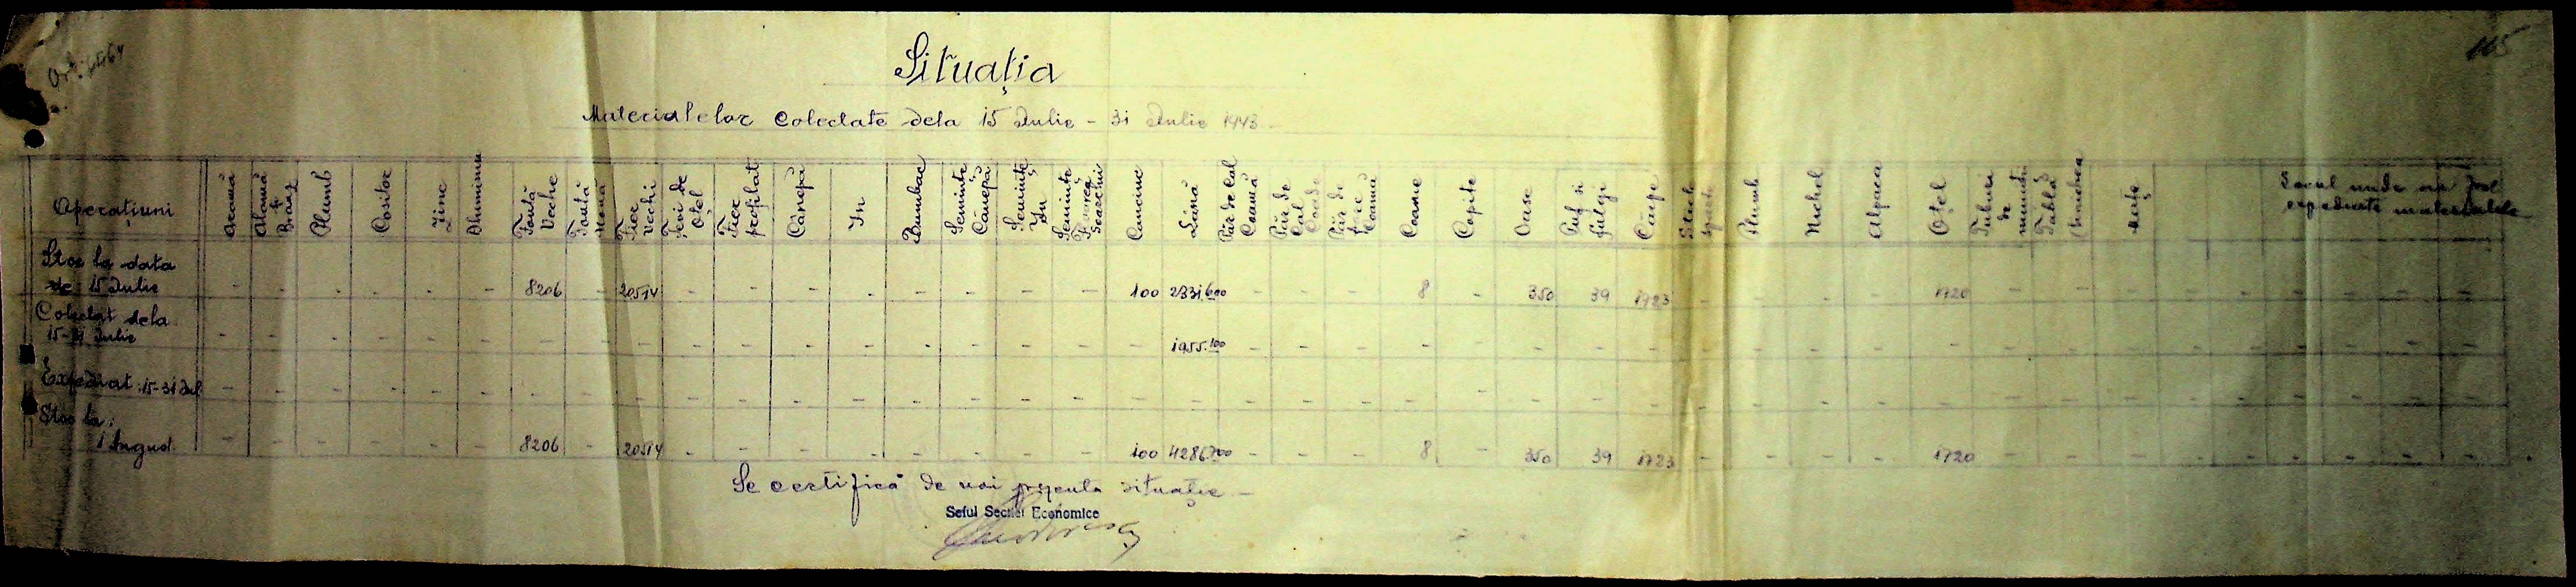 165
Situația
Materialelor Colectate dela 15 Iulie - 31 Iulie 1943 -
Operațiuni | Aramă | Alamă și Bronz | Plumb | Cositor | Zinc | Aluminiu | Fontă Veche | Fontă Nouă | Fier Vechi | Țevi de Oțel | Fier profilat | Cânepă | In | Bumbac | Semințe Cânepă | Semințe In | Semințe Floarea Soarelui | Cauciuc | Lână | Păr de Cal Coamă | Păr de Cal Coadă | Păr de | Coarne | Copite | Oase | Puf și fulgi | Cârpe | Sticlă spartă | Plumb | Nichel | Alpaca | Oțel | Tuburi de muniții | Tablă | Mațe | Locul unde au fost expediate materialele
Stoc la data de 15 Iulie | - | - | - | - | - | - | 8206 | - | 20514 | - | - | - | - | - | - | - | - | 100 | 2331.600 | - | - | - | 8 | - | 350 | 39 | 1723 | - | - | - | - | 1720 | - | - | -
Colectat dela 15-31 Iulie | - | - | - | - | - | - | - | - | - | - | - | - | - | - | - | - | - | - | 1955.100 | - | - | - | - | - | - | - | - | - | - | - | - | - | - | - | -
Expediat 15-31 Iul. | - | - | - | - | - | - | - | - | - | - | - | - | - | - | - | - | - | - | - | - | - | - | - | - | - | - | - | - | - | - | - | - | - | - | -
Stoc la: 1 August | - | - | - | - | - | - | 8206 | - | 20514 | - | - | - | - | - | - | - | - | 100 | 4286.700 | - | - | - | 8 | - | 350 | 39 | 1723 | - | - | - | - | 1720 | - | - | -
Se certifică de noi prezenta situație -
Seful Secției Economice